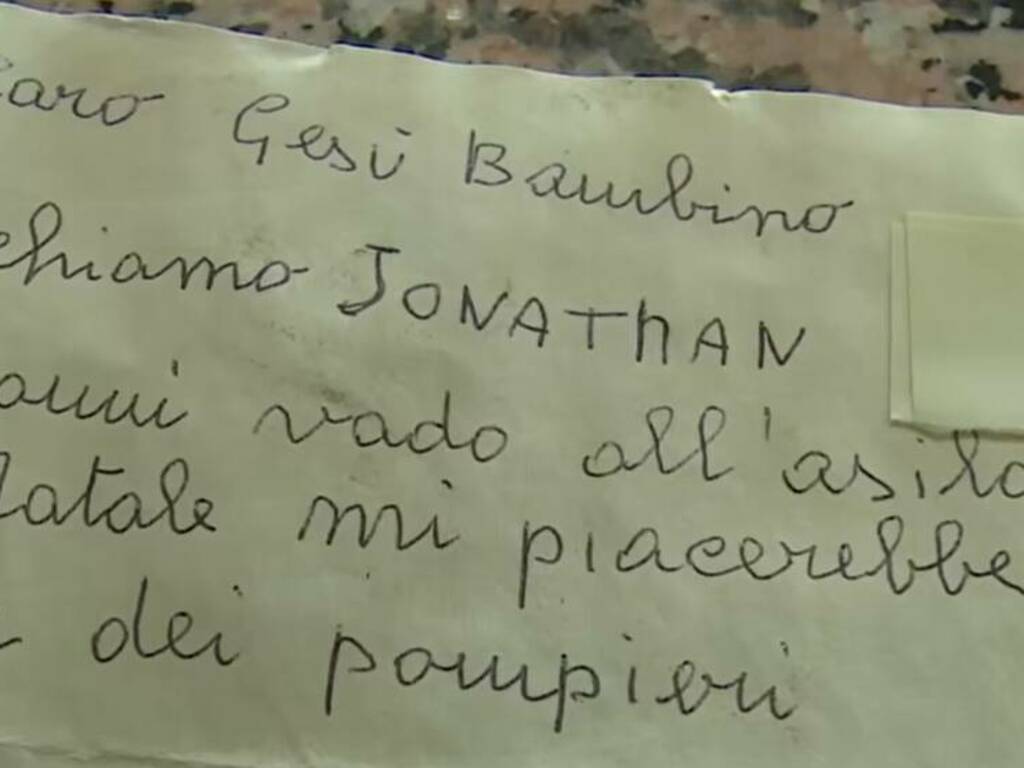 Caro Gesù Bambino
chiamo JONAThAN
anni vado all'asilo
Natale mi piacerebbe
dei pompieri